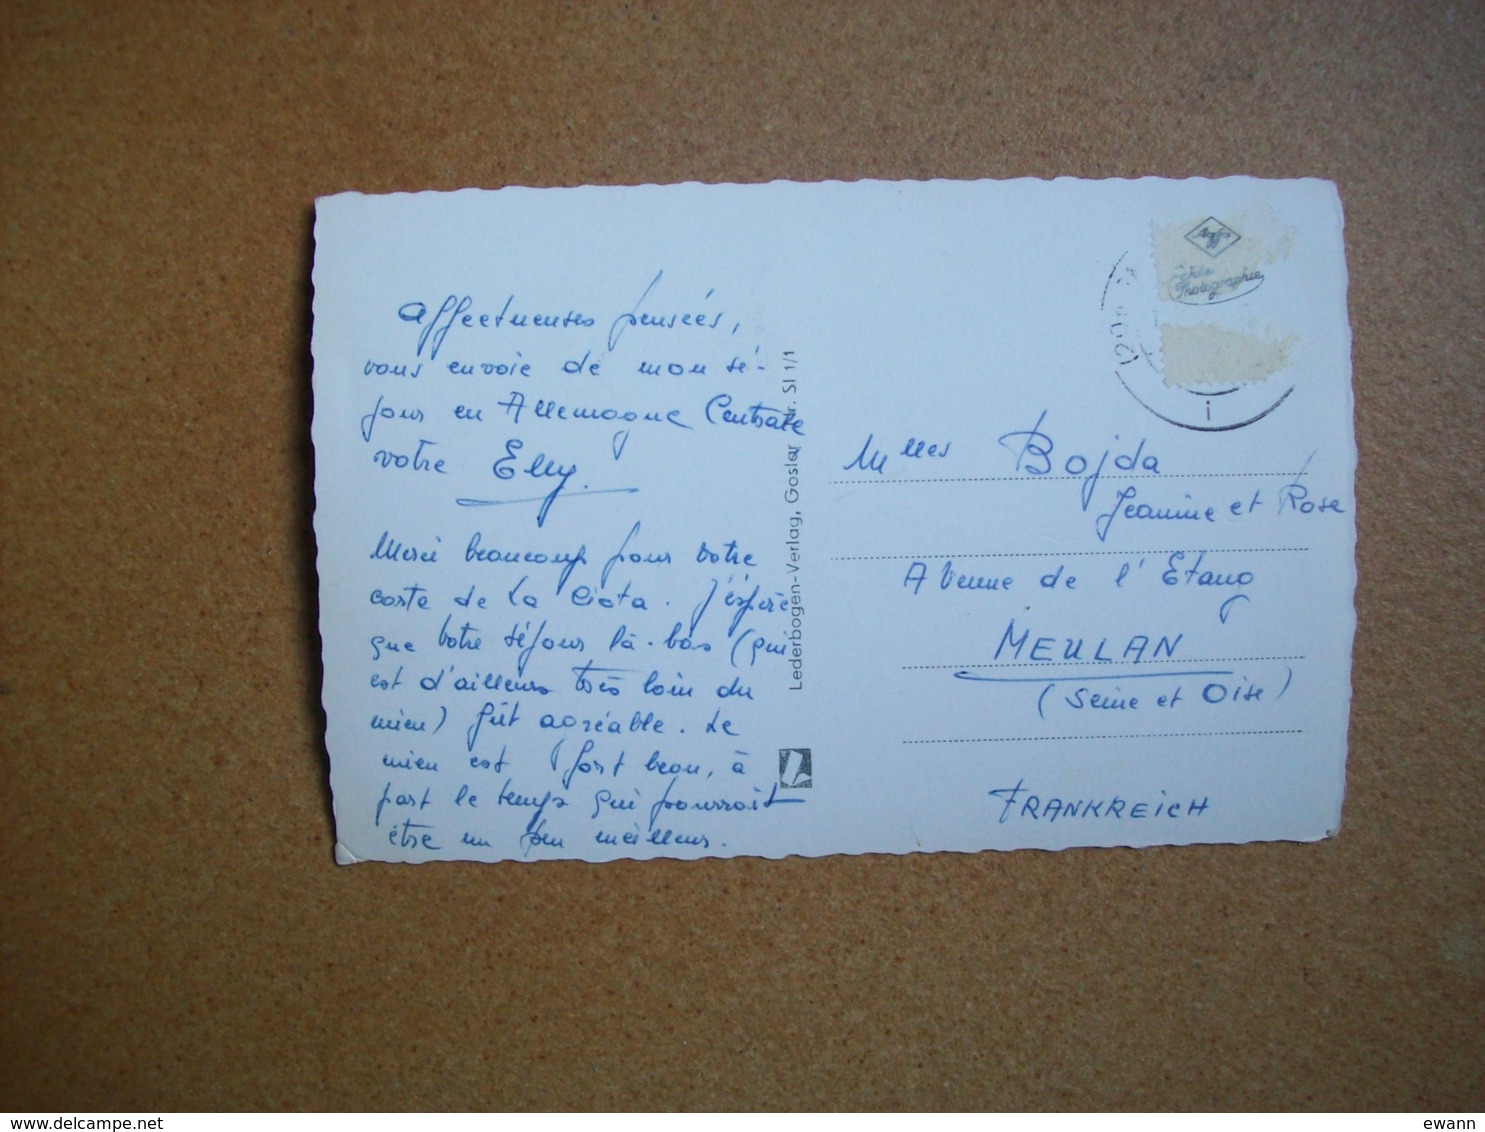 Affectueuses pensées,
vous envoie de mon sé-
jour en Allemagne Centrale
votre Elly.
Merci beaucoup pour votre
carte de La Ciota. J'espère
que votre séjour là-bas (qui
est d'ailleurs très loin du
mien) fût agréable. Le
mien est fort beau, à
part le temps qui pourrait
être un peu meilleur.
Lederbogen-Verlag, Goslar Nr. Sl 1/1
Agfa
Echte
Photographie
(20b)
i
Mlles Bojda
Jeanine et Rose
Avenue de l'Etang
MEULAN
(Seine et Oise)
FRANKREICH
delcampe.net
ewann